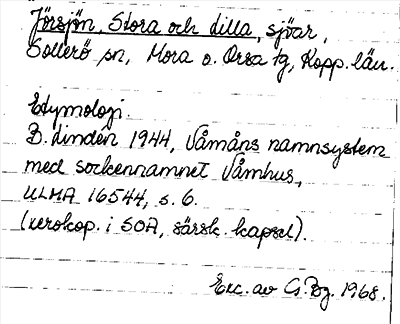 Jörsjön, Stora och Lilla, sjöar,
Sollerö sn, Mora o. Orsa tg, Kopp. län.
Etymologi.
B. Lindén 1944, Våmåns namnsystem
med sockennamnet Våmhus,
ULMA 16544, s. 6.
(xerokop. i SOA, särsk. kapsel).
Exc. av G. Bg. 1968.